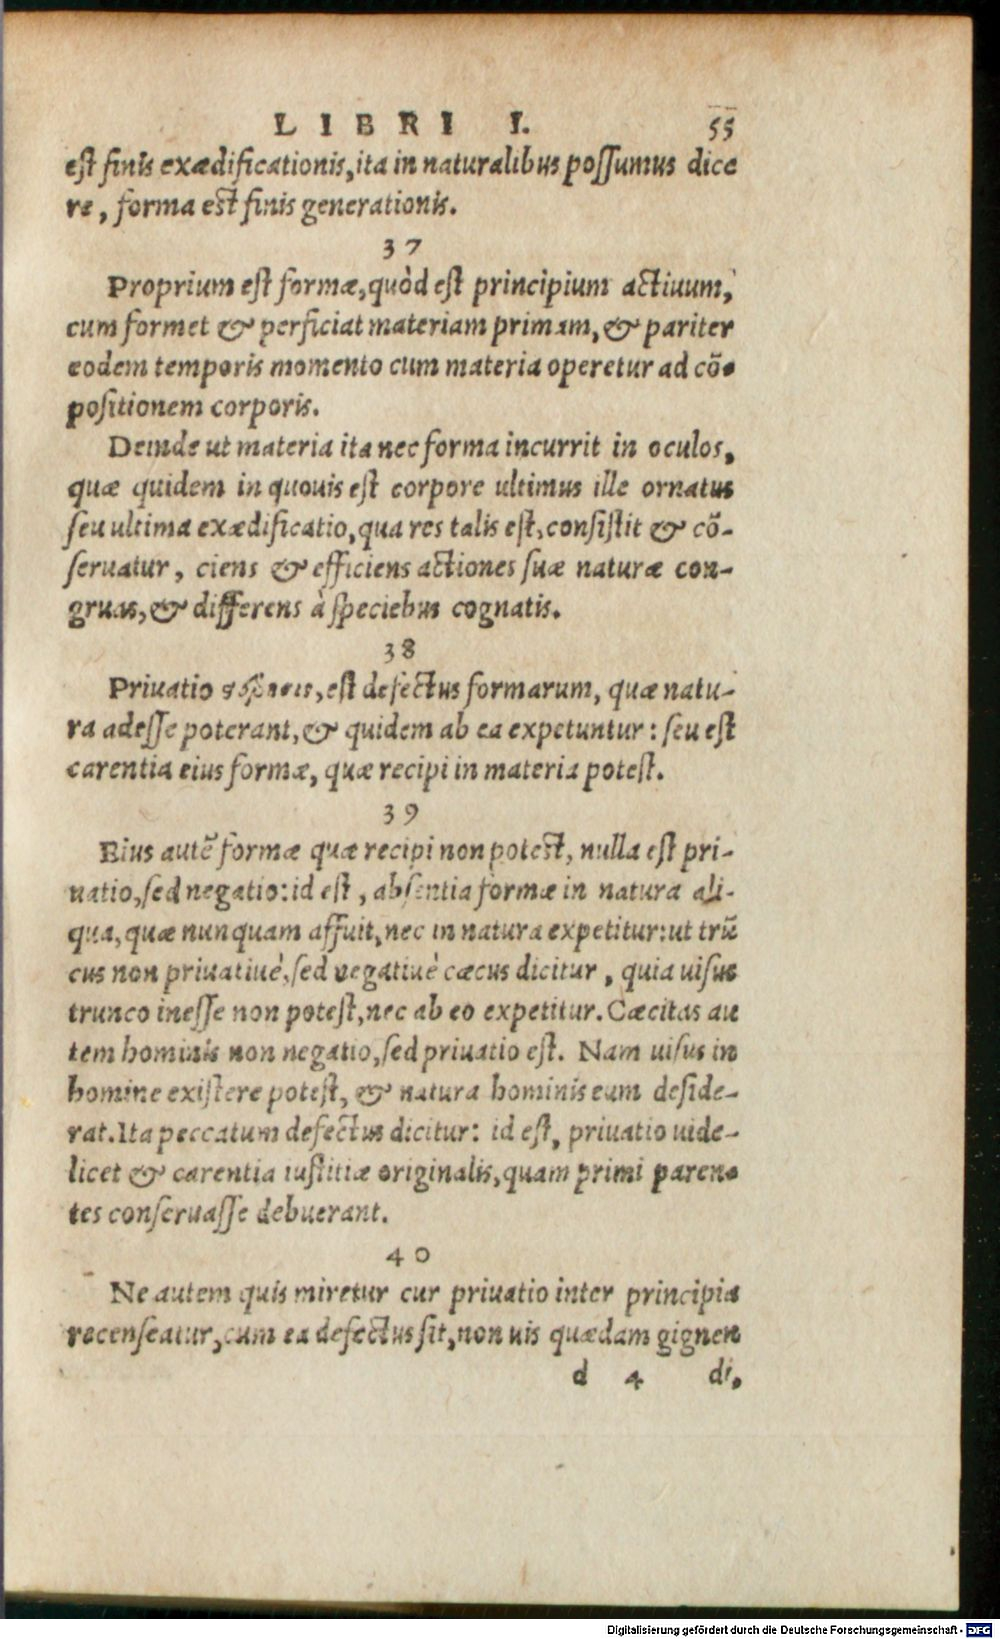 LIBRI I. 55
est finis exædificationis, ita in naturalibus possumus dice
re, forma est finis generationis.
37
Proprium est formæ, quòd est principium actiuum,
cum formet & perficiat materiam primam, & pariter
eodem temporis momento cum materia operetur ad cõ-
positionem corporis.
Deinde ut materia ita nec forma incurrit in oculos,
quæ quidem in quouis est corpore ultimus ille ornatus
seu ultima exædificatio, qua res talis est, consistit & cõ-
seruatur, ciens & efficiens actiones suæ naturæ con-
gruas, & differens à speciebus cognatis.
38
Priuatio , est defectus formarum, quæ natu-
ra adesse poterant, & quidem ab ea expetuntur: seu est
carentia eius formæ, quæ recipi in materia potest.
39
Eius autẽ formæ quæ recipi non potest, nulla est pri-
uatio, sed negatio: id est, absentia formæ in natura ali-
qua, quæ nunquam affuit, nec in natura expetitur: ut trũ
cus non priuatiuè, sed negatiuè cæcus dicitur, quia uisus
trunco inesse non potest, nec ab eo expetitur. Cæcitas au
tem hominis non negatio, sed priuatio est. Nam uisus in
homine existere potest, & natura hominis eum deside-
rat. Ita peccatum defectus dicitur: id est, priuatio uide-
licet & carentia iustitiæ originalis, quam primi paren-
tes conseruasse debuerant.
40
Ne autem quis miretur cur priuatio inter principia
recenseatur, cum ea defectus sit, non uis quædam gignen
d 4 di,
Digitalisierung gefördert durch die Deutsche Forschungsgemeinschaft - DFG